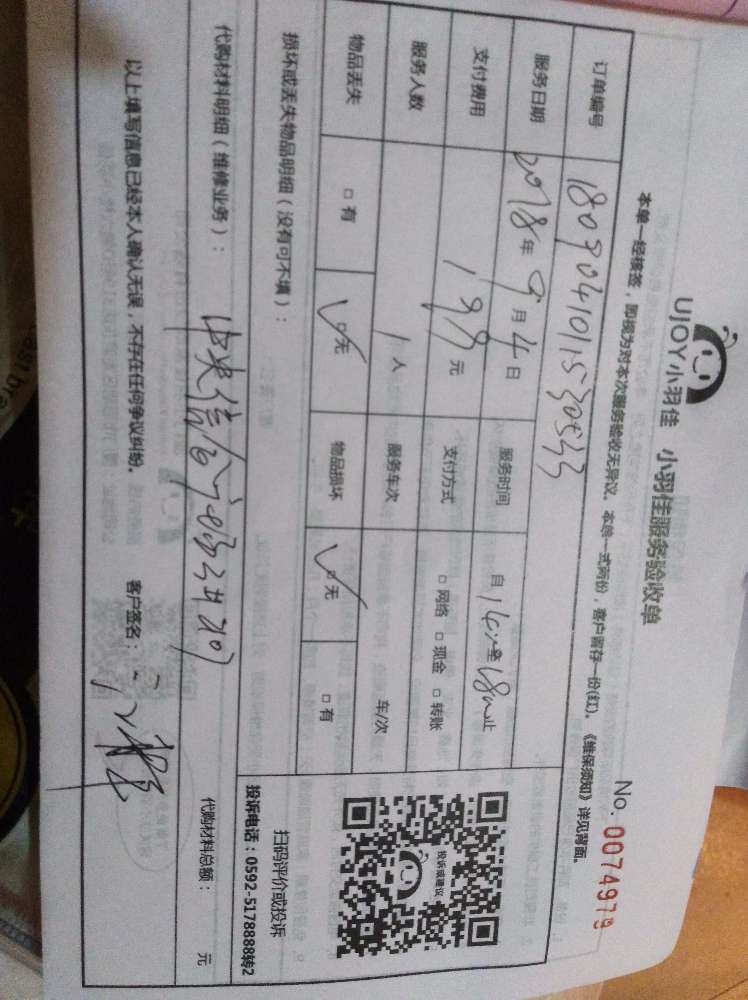 UJOY小羽佳 小羽佳服务验收单
No. 0074979
本单一经接签，即视为对本次服务验收无异议。本单一式两份，客户留存一份(红)。《维保须知》详见背面。
订单编号 180904101530533
服务日期 2018年9月4日 服务时间 自14:至18:止
支付费用 199元 支付方式 □网络 □现金 □转账
服务人数 1人 服务车次 车/次
物品丢失 □有 ☑无 物品损坏 ☑无 □有
损坏或丢失物品明细（没有可不填）：
投诉或建议
扫码评价或投诉
投诉电话：0592-5178888转2
代购材料明细（维修业务）：
代购材料总额： 元
以上填写信息已经本人确认无误，不存在任何争议纠纷。 客户签名：